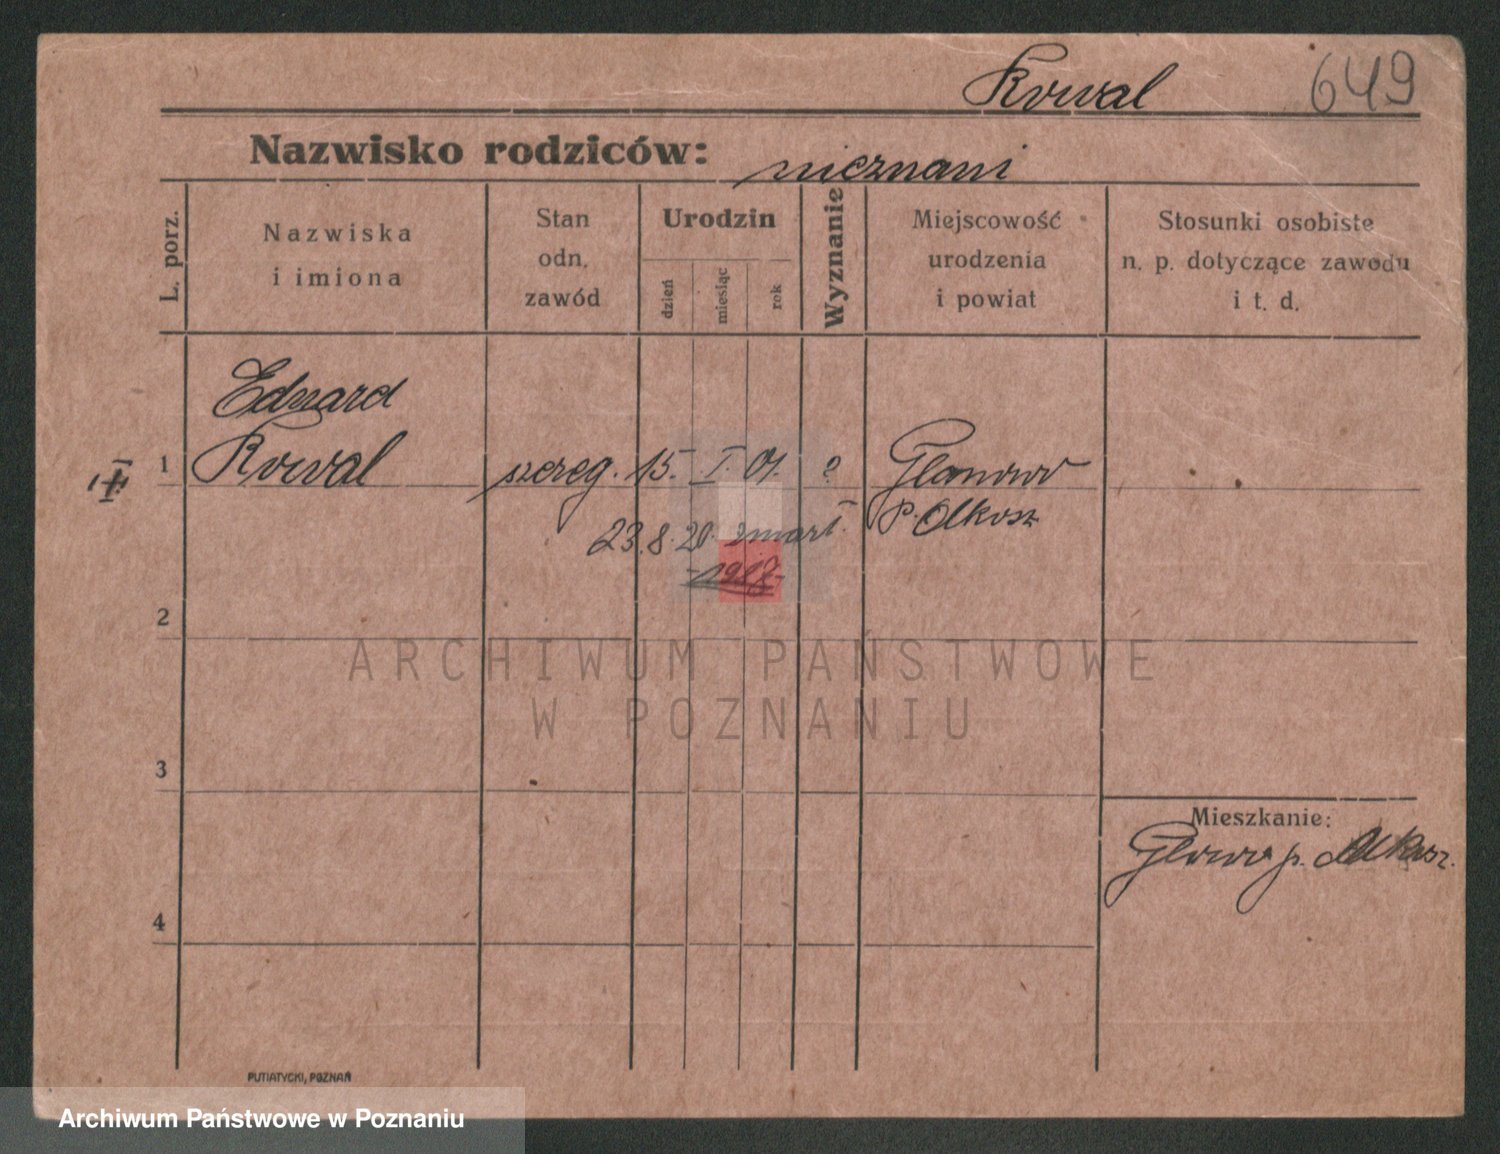 Kowal 649
Nazwisko rodziców: nieznani
L. porz.
Nazwiska
i imiona
Stan
odn.
zawód
Urodzin
dzień
miesiąc
rok
Wyznanie
Miejscowość
urodzenia
i powiat
Stosunki osobiste
n. p. dotyczące zawodu
i t. d.
Edward
1 Kowal szereg. 15. I. 01. ? Glanowo
p. Olkusz
23.8.20. zmarł.
2
ARCHIWUM PAŃSTWOWE
W POZNANIU
3
Mieszkanie:
p. Olkusz.
4
PUTIATYCKI, POZNAŃ
Archiwum Państwowe w Poznaniu